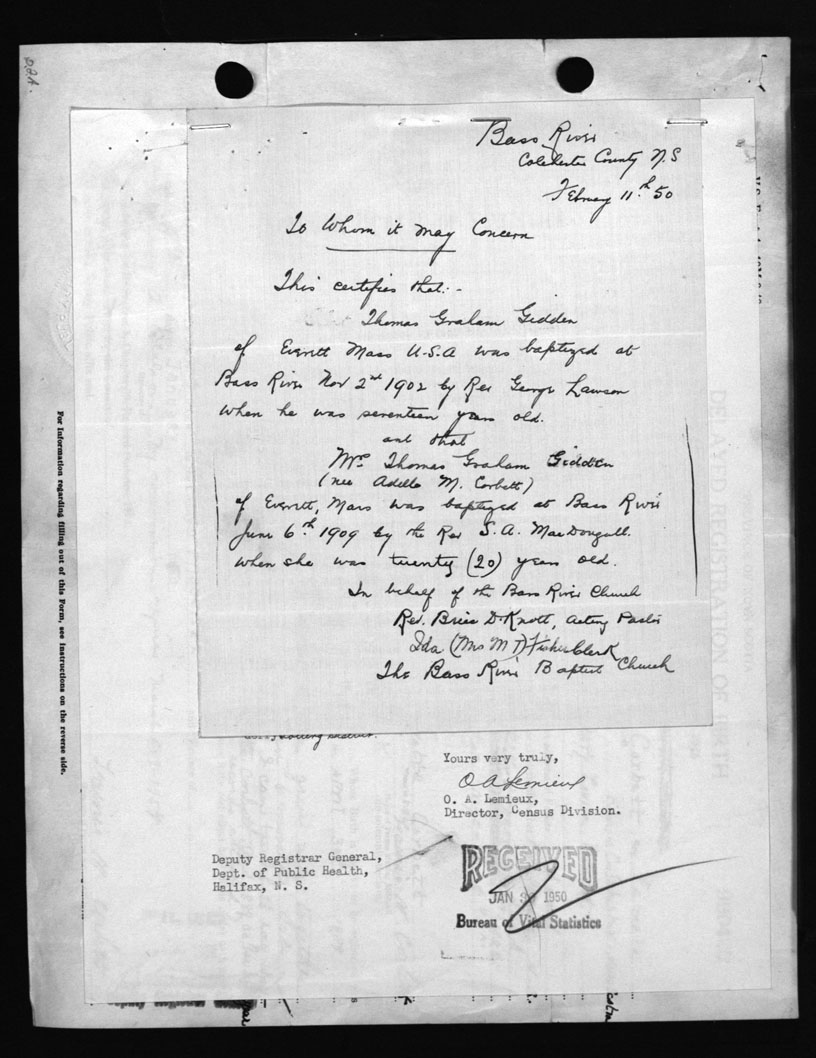 D2A.
Bass River
Colchester County N.S
February 11th 50
To Whom it may Concern
This certifies that:-
Thomas Graham Gidden
of Everett Mass U.S.A was baptized at
Bass River Nov 2nd 1902 by Rev George Lawson
when he was seventeen years old.
and that
Mrs Thomas Graham Giddin
(nee Adella M. Corbett)
of Everett, Mass was baptized at Bass River
June 6th 1909 by the Rev S.A. MacDougall.
when she was twenty (20) years old.
In behalf of the Bass River Church
Rev. Brice D. Knott, Acting Pastor
Ida (Mrs M T) Fisher Clerk
The Bass River Baptist Church
Yours very truly,
O A Lemieux
O. A. Lemieux,
Director, Census Division.
Deputy Registrar General,
Dept. of Public Health,
Halifax, N. S.
RECEIVED
JAN 1950
Bureau of Vital Statistics
For Information regarding filling out of this Form, see Instructions on the reverse side.
DELAYED REGISTRATION OF BIRTH